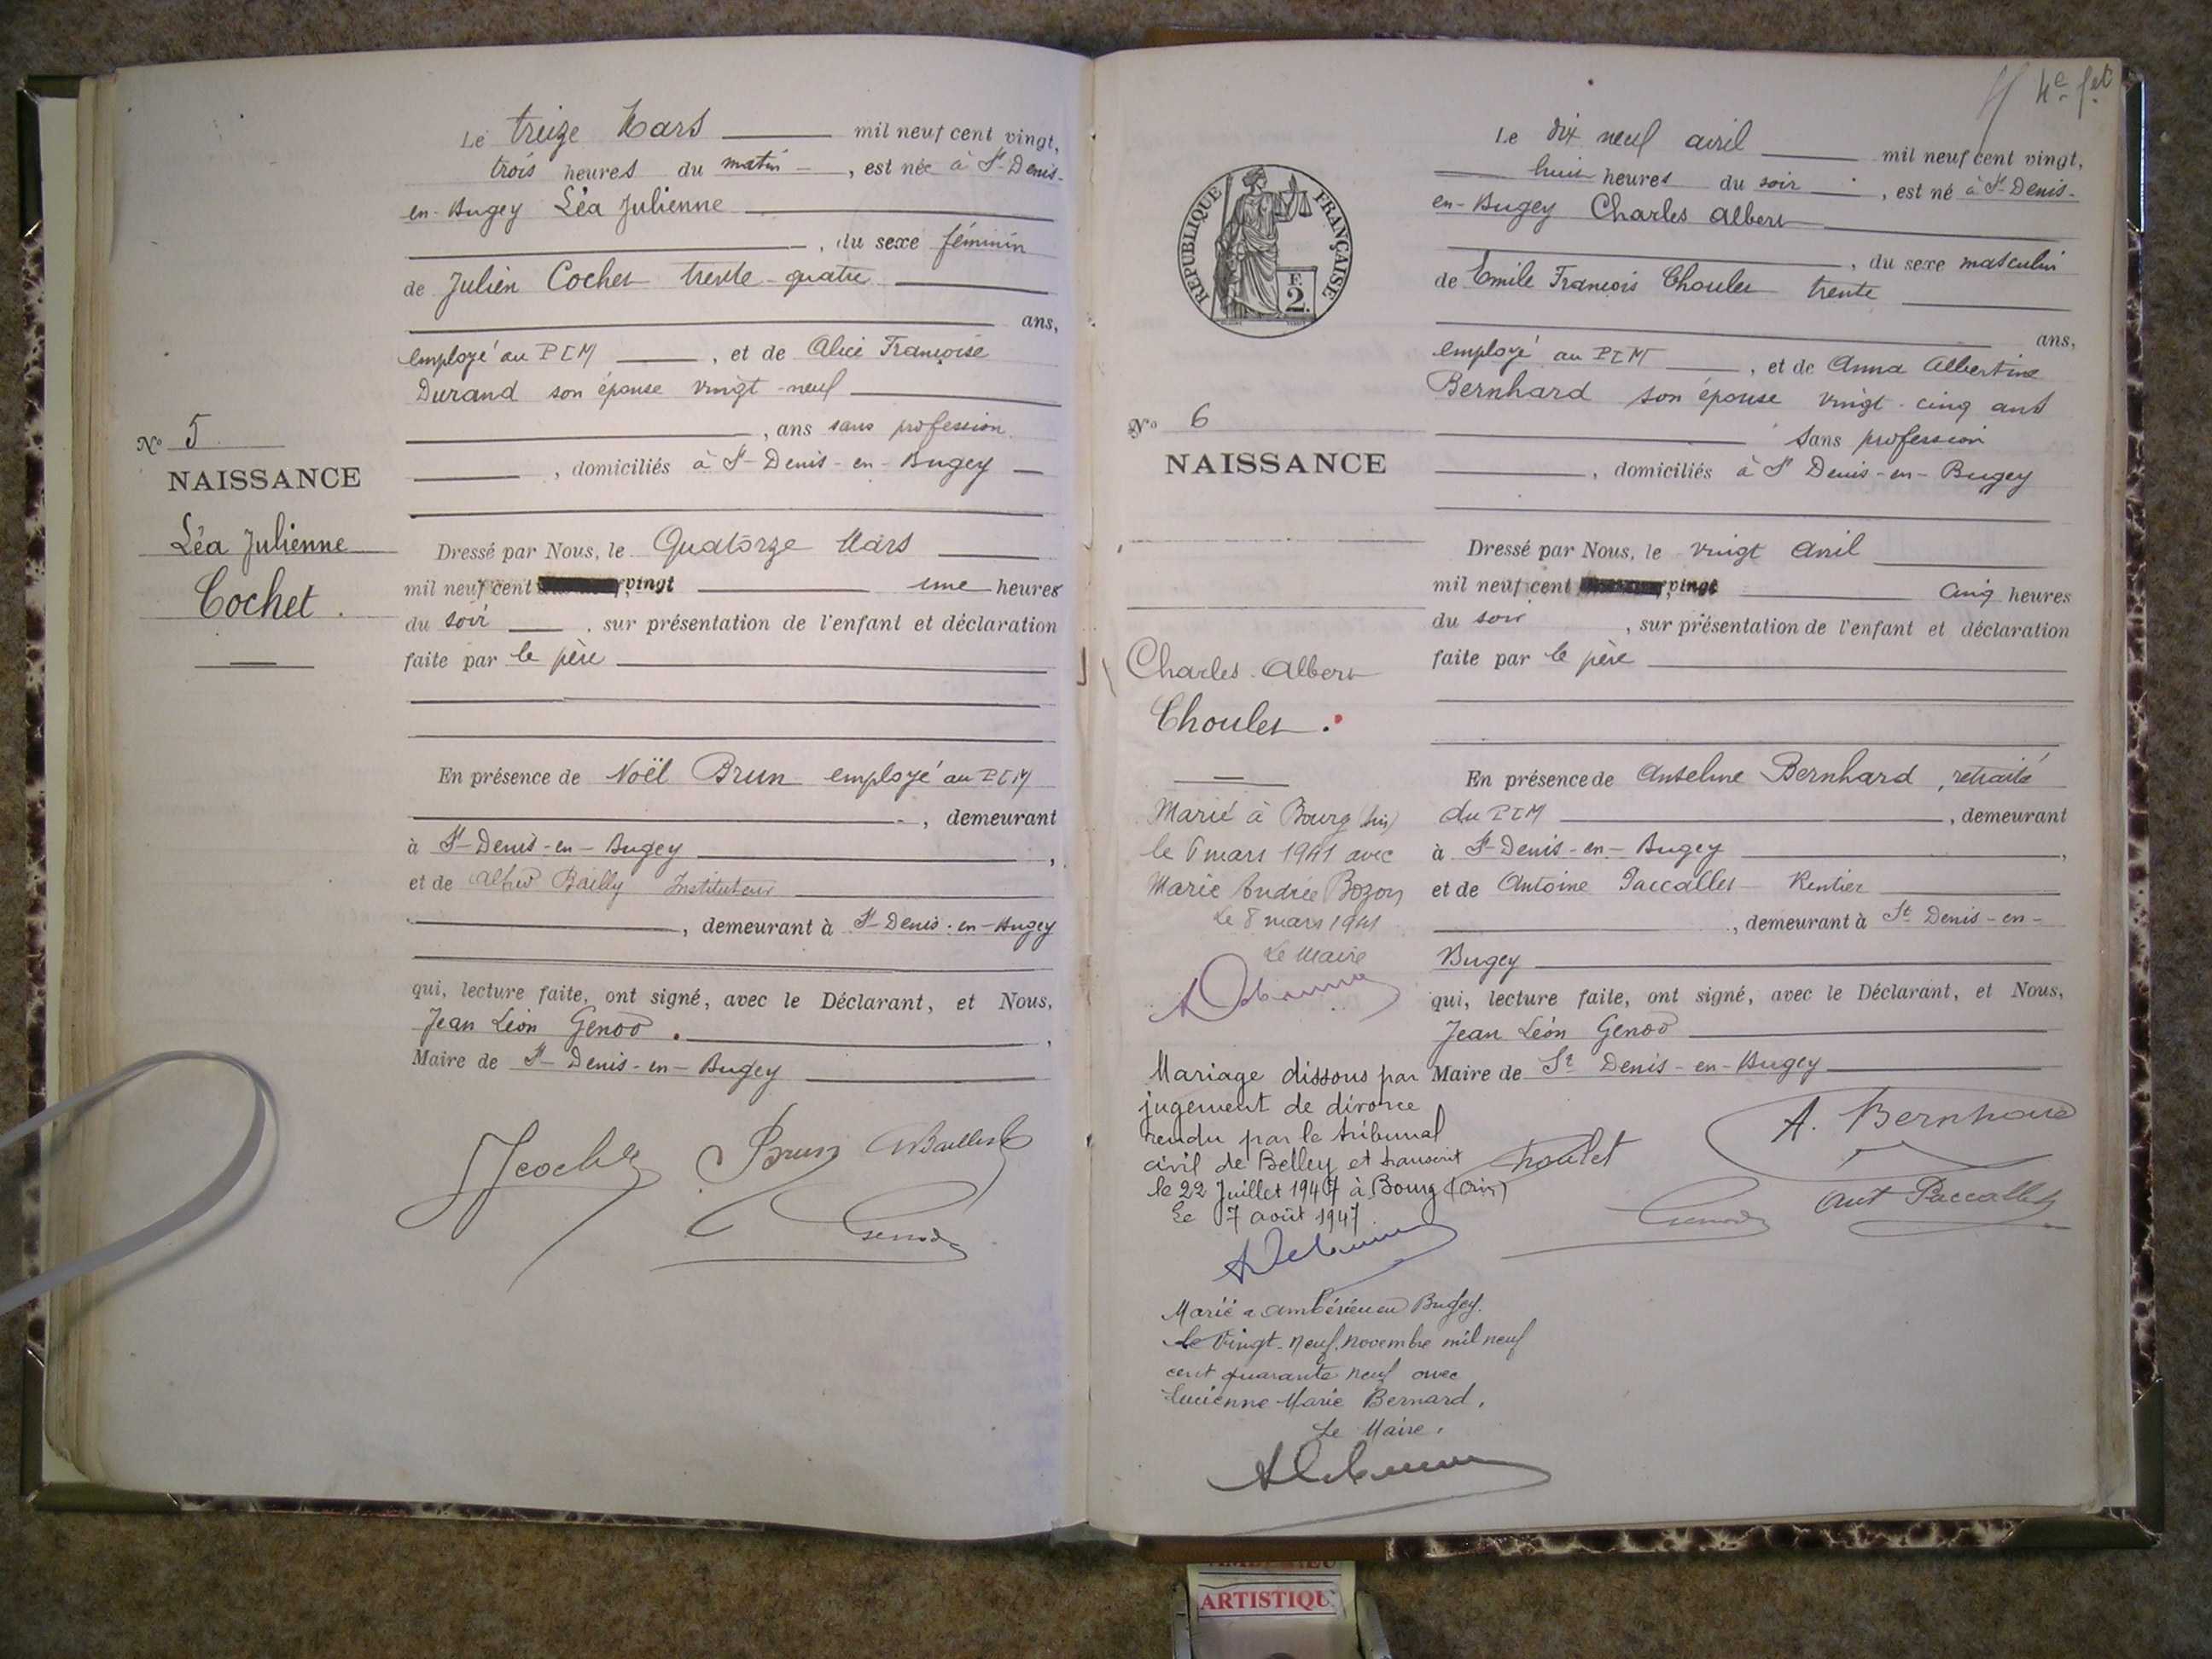 Le treize Mars mil neuf cent vingt,
trois heures du matin, est née à St-Denis-
en-Bugey Léa Julienne
, du sexe féminin
de Julien Cochet trente-quatre
ans,
employé au PLM, et de Alice Françoise
Durand son épouse vingt-neuf
, ans sans profession
, domiciliés à St-Denis-en-Bugey
No 5
NAISSANCE
Léa Julienne
Cochet.
Dressé par Nous, le Quatorze Mars
mil neuf cent vingt une heures
du soir, sur présentation de l'enfant et déclaration
faite par le père
En présence de Noël Brun employé au PLM
, demeurant
à St-Denis-en-Bugey,
et de Alfred Bailly Instituteur
, demeurant à St-Denis-en-Bugey
qui, lecture faite, ont signé, avec le Déclarant, et Nous,
Jean Léon Genod.,
Maire de St-Denis-en-Bugey
JCochet Brun Bailly
Genod
4e fet
Le dix neuf avril mil neuf cent vingt,
huit heures du soir, est né à St-Denis-
en-Bugey Charles Albert
, du sexe masculin
de Emile François Choulet trente
ans,
employé au PLM, et de Anna Albertine
Bernhard son épouse vingt-cinq ans
sans profession
, domiciliés à St Denis-en-Bugey
RÉPUBLIQUE FRANÇAISE
F.
2.
No 6
NAISSANCE
Charles-Albert
Choulet.
Dressé par Nous, le vingt Avril
mil neuf cent vingt cinq heures
du soir, sur présentation de l'enfant et déclaration
faite par le père
En présence de Anselme Bernhard, retraité
du PLM, demeurant
à St-Denis-en-Bugey,
et de Antoine Paccallet Rentier
, demeurant à St Denis-en-
Bugey
qui, lecture faite, ont signé, avec le Déclarant, et Nous,
Jean Léon Genod
Maire de St Denis-en-Bugey
Choulet A. Bernhard
Genod Ant Paccallet
Marié à Bourg (Ain)
le 6 mars 1941 avec
Marie Andrée Bozon
Le 8 mars 1941
Le Maire
Mariage dissous par
jugement de divorce
rendu par le tribunal
civil de Belley et transcrit
le 22 Juillet 1947 à Bourg (Ain)
Le 7 août 1947
Marié a Ambérieu en Bugey.
le Vingt-Neuf Novembre mil neuf
cent quarante neuf avec
Lucienne Marie Bernard.
Le Maire.
ARTISTIQU